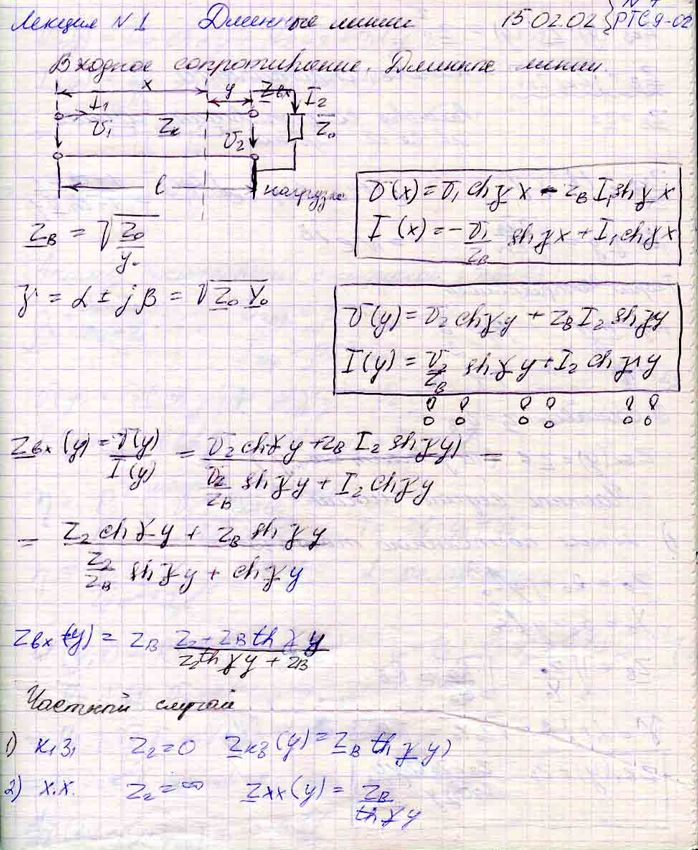 Лекция №1 Длинные линии 15.02.02 РТС9-02
Входное сопротивление. Длинные линии.
x y Zвх I2
I1
U1 Zк U2 Z0
l нагрузка
U(x) = U1 chγx - ZB I1 shγx
I(x) = -U1/ZB shγx + I1 chγx
ZB = √(Z0/Y0)
γ = α ± jβ = √(Z0 Y0)
U(y) = U2 chγy + ZB I2 shγy
I(y) = U2/ZB shγy + I2 chγy
Zвх(y) = U(y)/I(y) = (U2 chγy + ZB I2 shγy)/(U2/ZB shγy + I2 chγy) =
= (Z2 chγy + ZB shγy)/(Z2/ZB shγy + chγy)
Zвх(y) = ZB (Z2 + ZB thγy)/(Z2 thγy + ZB)
Частный случай
1) к.з. Z2=0 Zкз(y) = ZB thγy)
2) х.х. Z2=∞ Zхх(y) = ZB/thγy